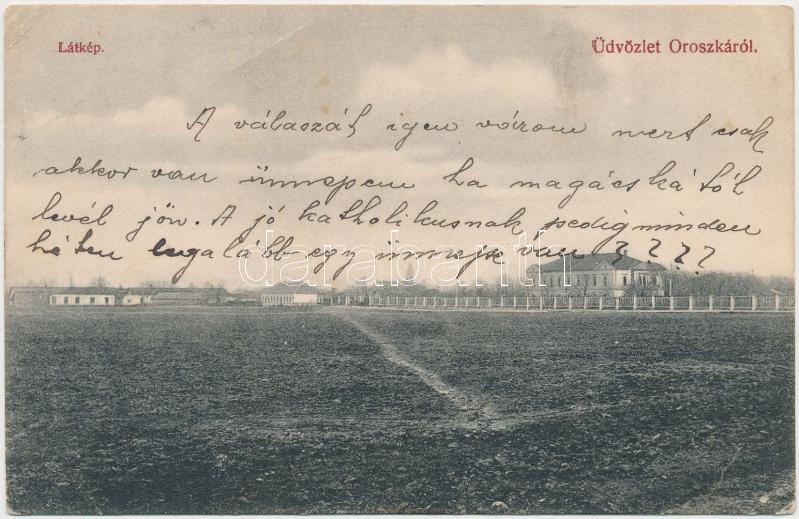 Látkép.
Üdvözlet Oroszkáról.
A válaszát igen várom mert csak
akkor van ünnepem ha magácskától
levél jön. A jó katholikusnak pedig minden
héten legalább egy ünnepe van ? ? ? ?
darabanth